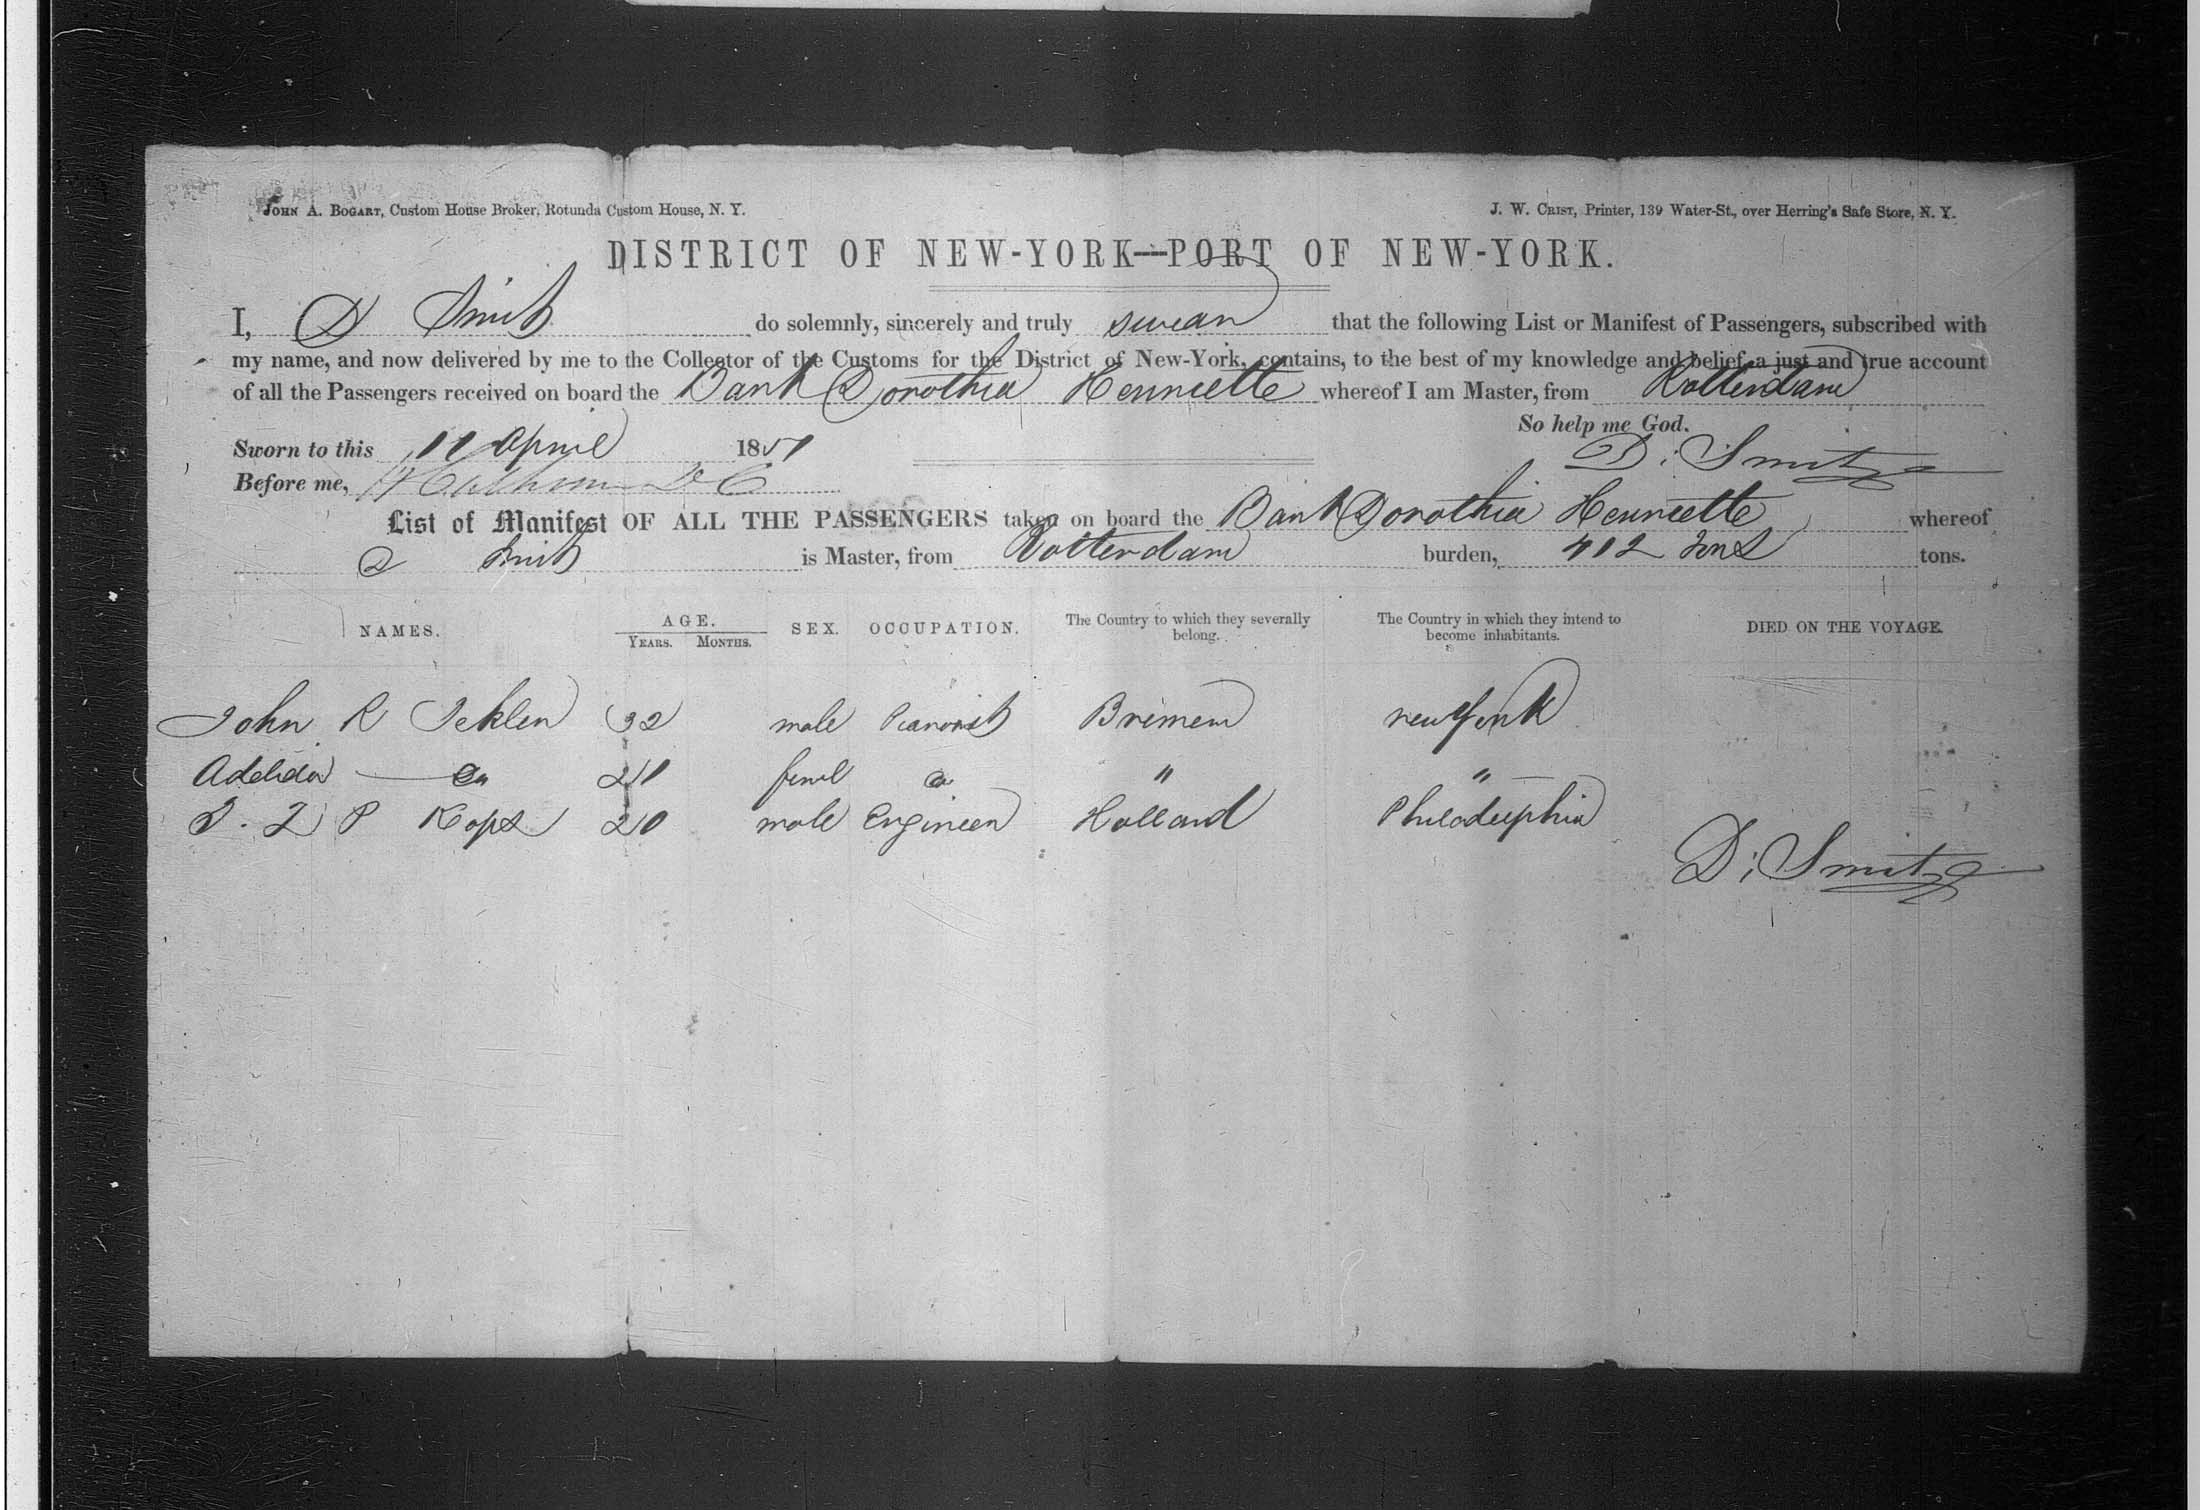 JOHN A. BOGART, Custom House Broker, Rotunda Custom House, N. Y. J. W. CRIST, Printer, 139 Water-St., over Herring's Safe Store, N. Y.
DISTRICT OF NEW-YORK—PORT OF NEW-YORK.
I, D Smit do solemnly, sincerely and truly swear that the following List or Manifest of Passengers, subscribed with
my name, and now delivered by me to the Collector of the Customs for the District of New-York, contains, to the best of my knowledge and belief, a just and true account
of all the Passengers received on board the Bark Dorothia Henriette whereof I am Master, from Rotterdam
So help me God.
Sworn to this 11 April 1851 D. Smit
Before me,
List of Manifest OF ALL THE PASSENGERS taken on board the Bark Dorothia Henriette whereof
D Smit is Master, from Rotterdam burden, 412 tons tons.
NAMES. AGE. YEARS. MONTHS. SEX. OCCUPATION. The Country to which they severally belong. The Country in which they intend to become inhabitants. DIED ON THE VOYAGE.
John R 32 male Pianoist Bremen new York
Adelida 21 feml " "
P Kops 20 male Engineer Holland Philadelphia
D. Smit